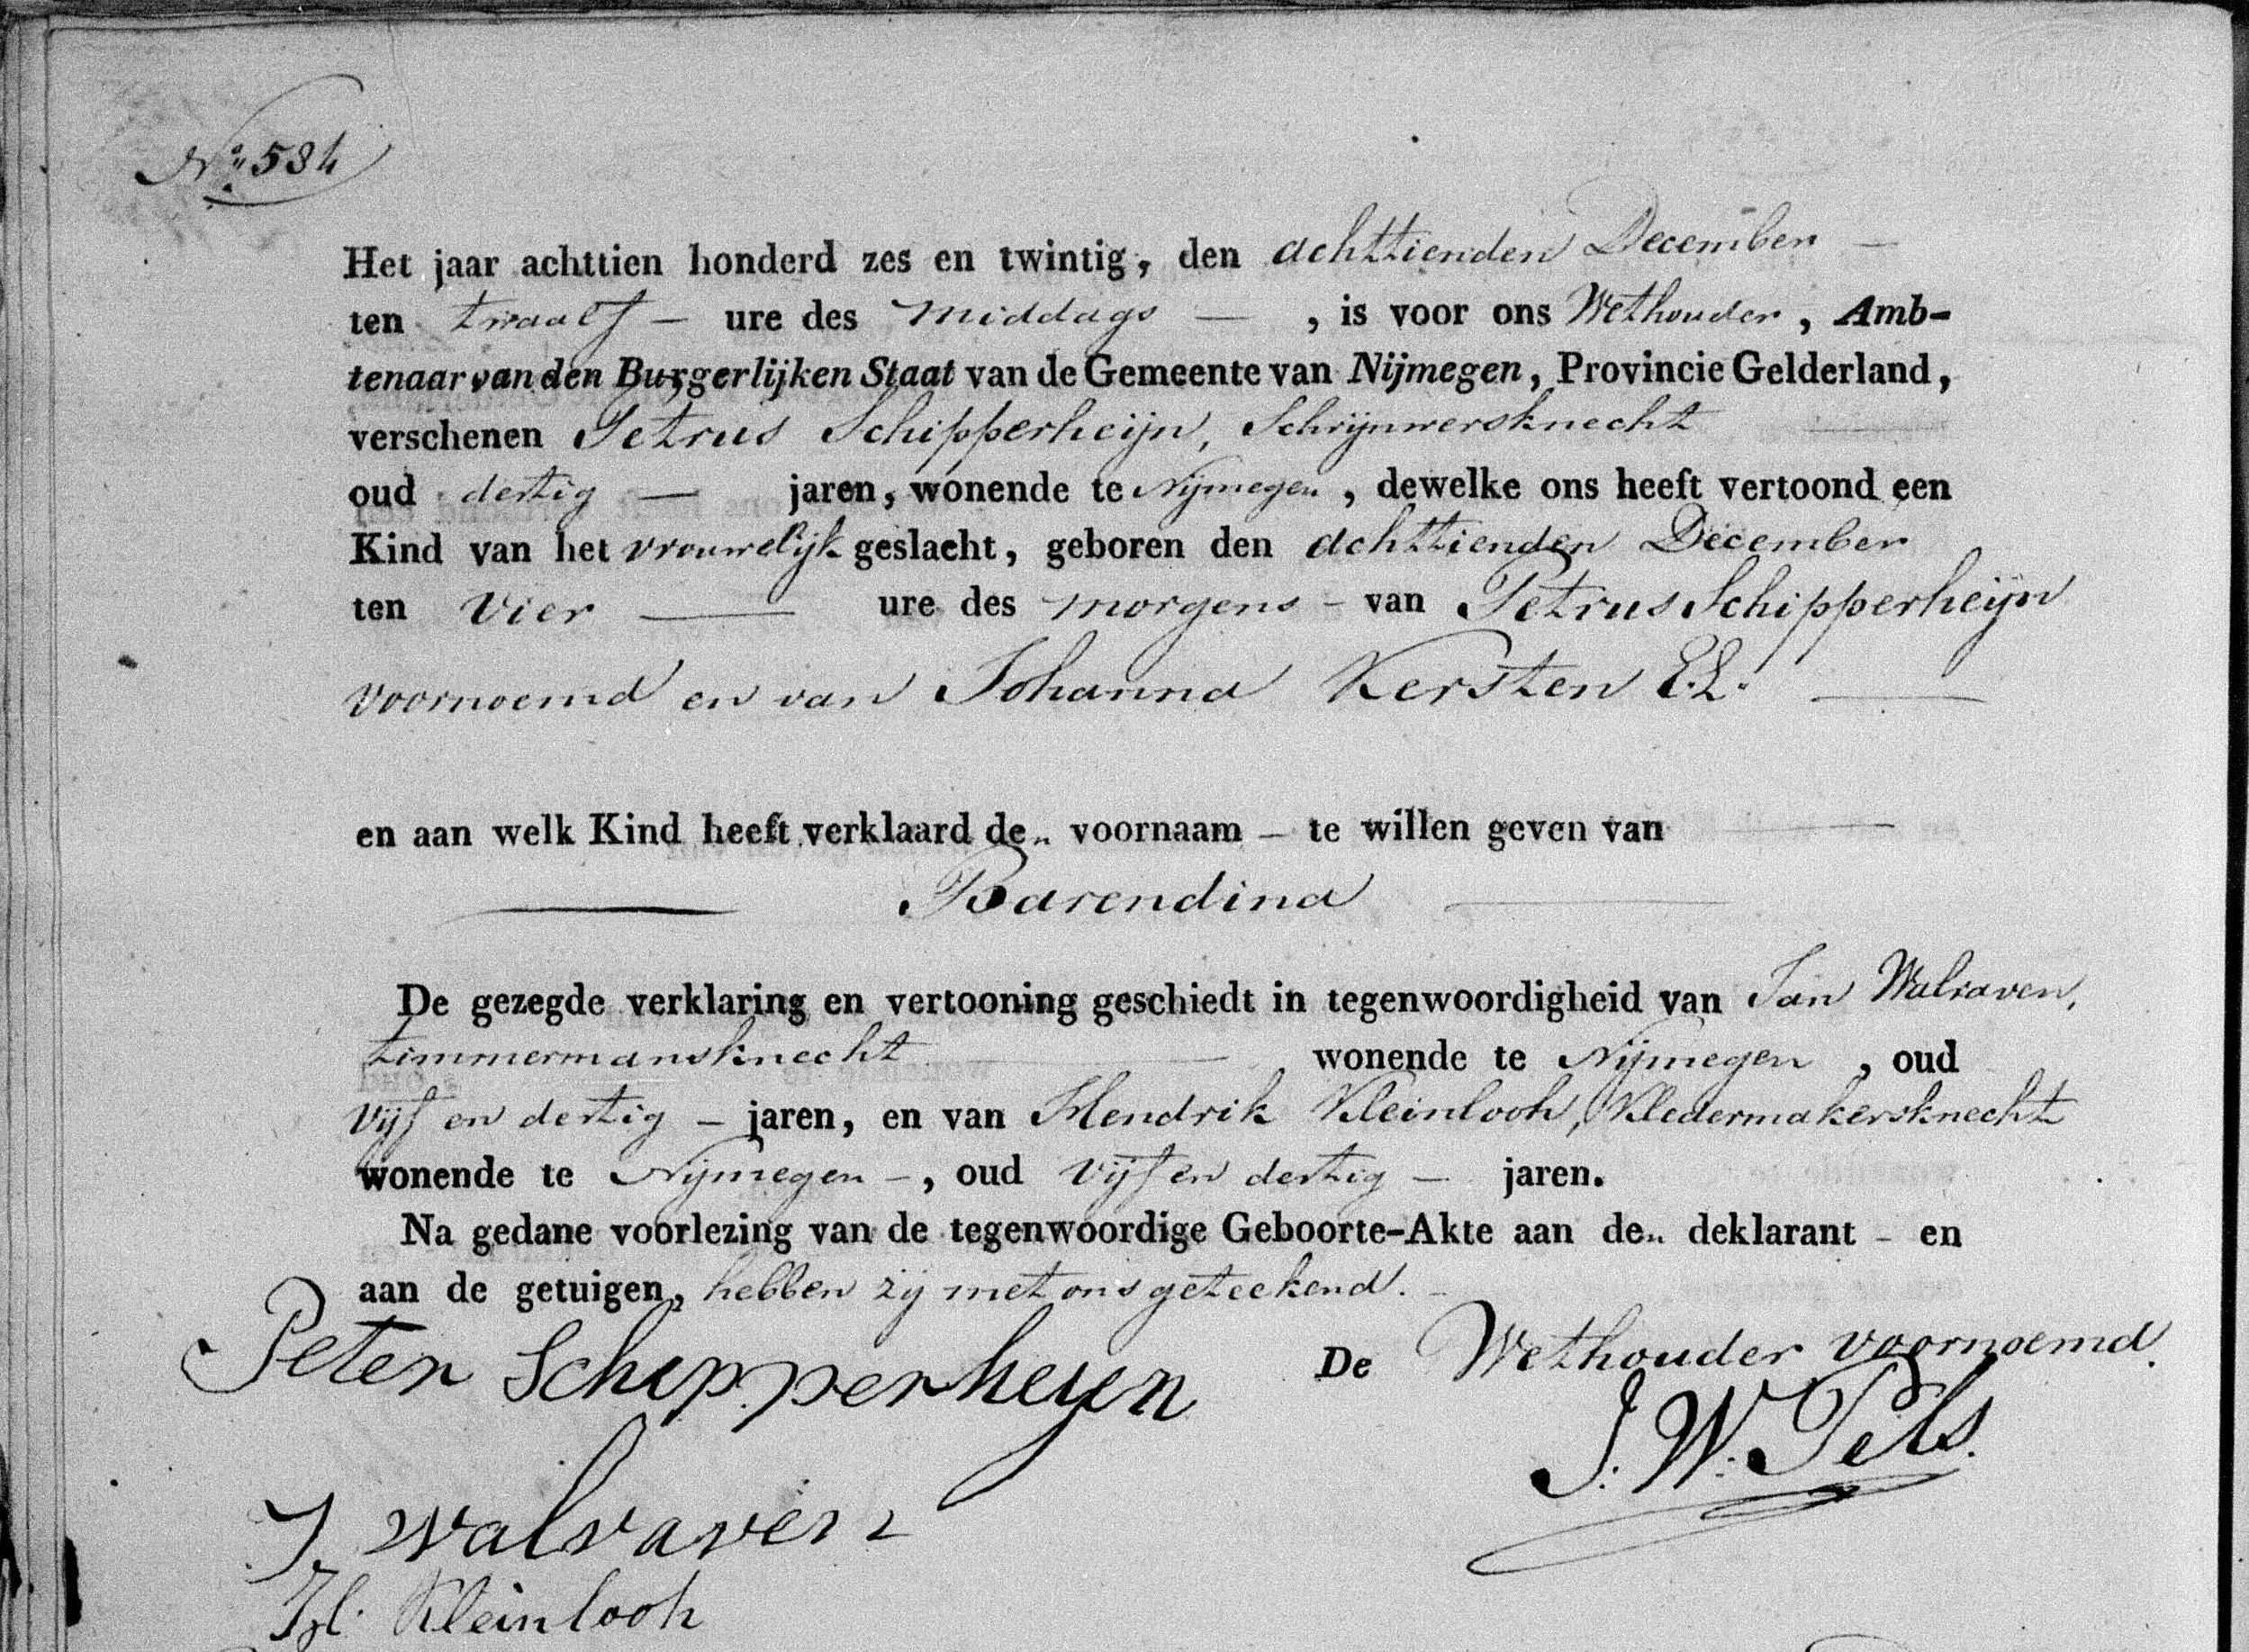 No 534
Het jaar achttien honderd zes en twintig, den achttienden December —
ten twaalf — ure des middags — , is voor ons Wethouder, Amb-
tenaar van den Burgerlijken Staat van de Gemeente van Nijmegen, Provincie Gelderland,
verschenen Petrus Schipperheijn, Schrijnwersknecht
oud dertig — jaren, wonende te Nijmegen, dewelke ons heeft vertoond een
Kind van het vrouwelijk geslacht, geboren den achttienden December
ten vier — ure des morgens - van Petrus Schipperheijn
voornoemd en van Johanna Kersten E.L. —
en aan welk Kind heeft verklaard den voornaam — te willen geven van —
— Barendina —
De gezegde verklaring en vertooning geschiedt in tegenwoordigheid van Jan Walraven,
timmermansknecht — wonende te Nijmegen, oud
vijf en dertig — jaren, en van Hendrik Kleinlooh, Kledermakersknecht
wonende te Nijmegen -, oud vijf en dertig — jaren.
Na gedane voorlezing van de tegenwoordige Geboorte-Akte aan den deklarant - en
aan de getuigen, hebben zij met ons geteekend. -
Peter Schipperheijn
De Wethouder voornoemd.
J. W. Pels.
J. walraven
H. Kleinlooh